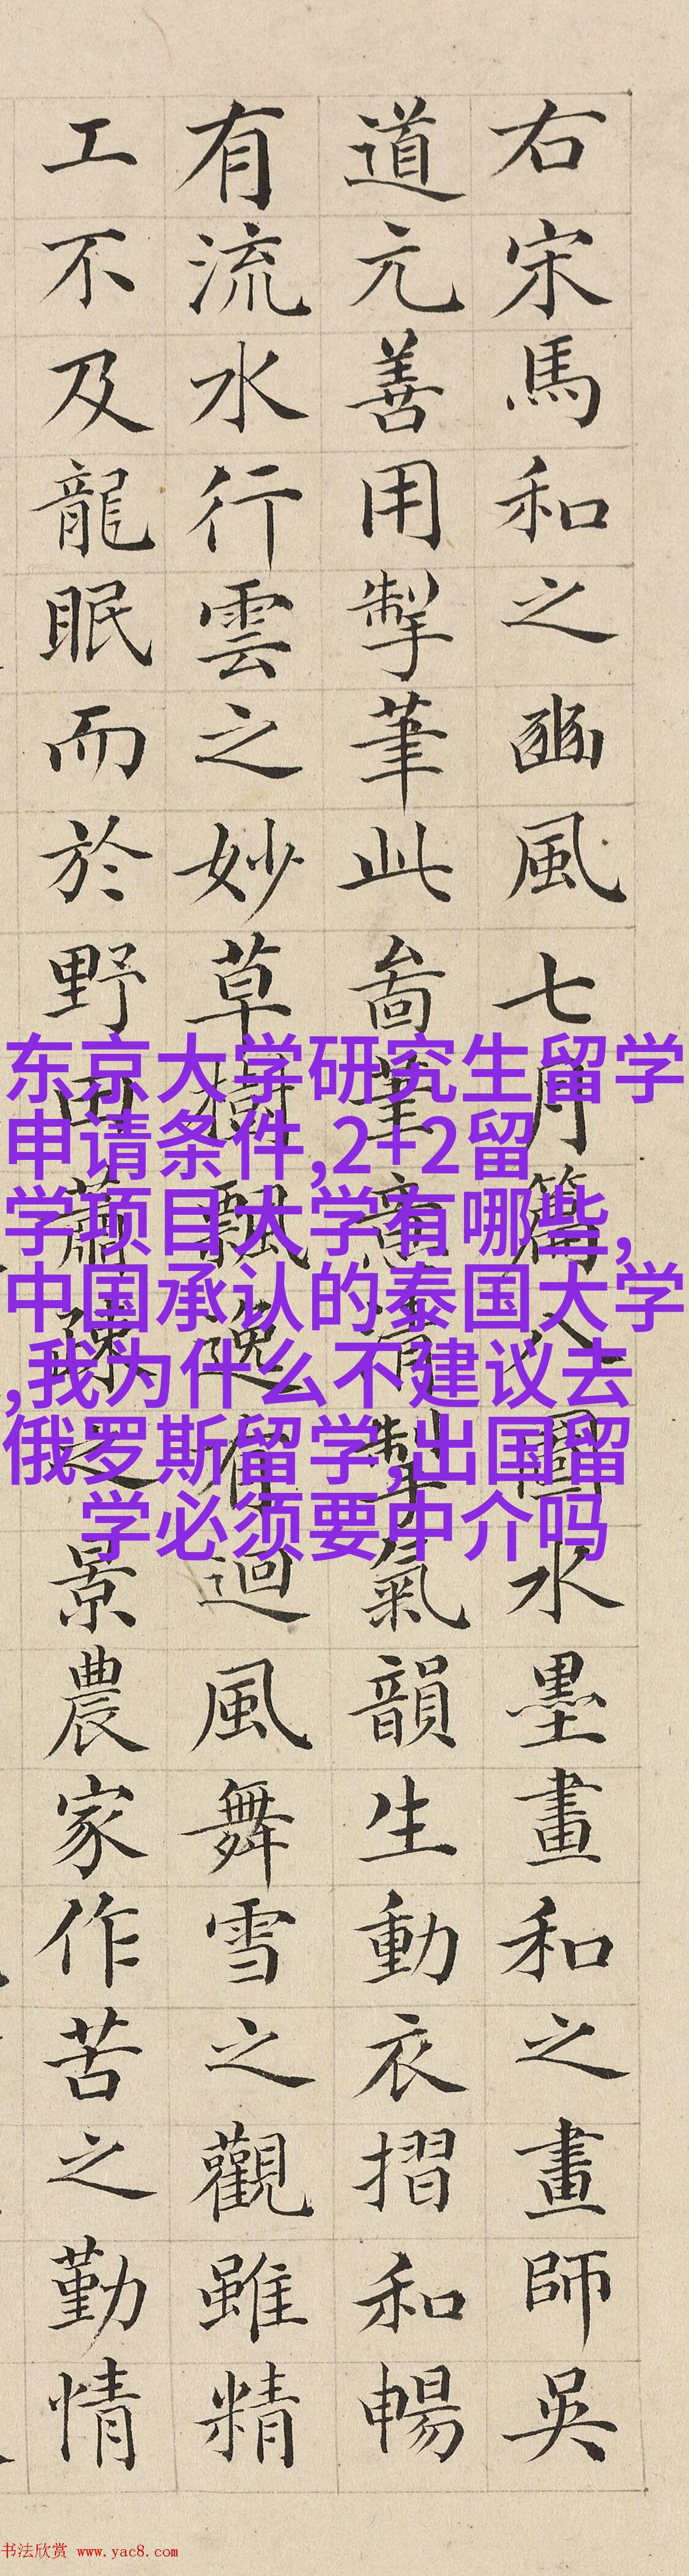 右宋馬和之豳風七月篇八圖水墨畫和之畫師吳
道元善用掣筆此啚筆意清氣韻生動衣摺和暢
有流水行雲之妙草樹飄逸有迴風舞雪之觀雖精
工不及龍眠而於野田蕭疎之景農家作苦之勤情
东京大学研究生留学
申请条件,2+2留
学项目大学有哪些,
中国承认的泰国大学
,我为什么不建议去
俄罗斯留学,出国留
学必须要中介吗
书法欣赏 www.yac8.com